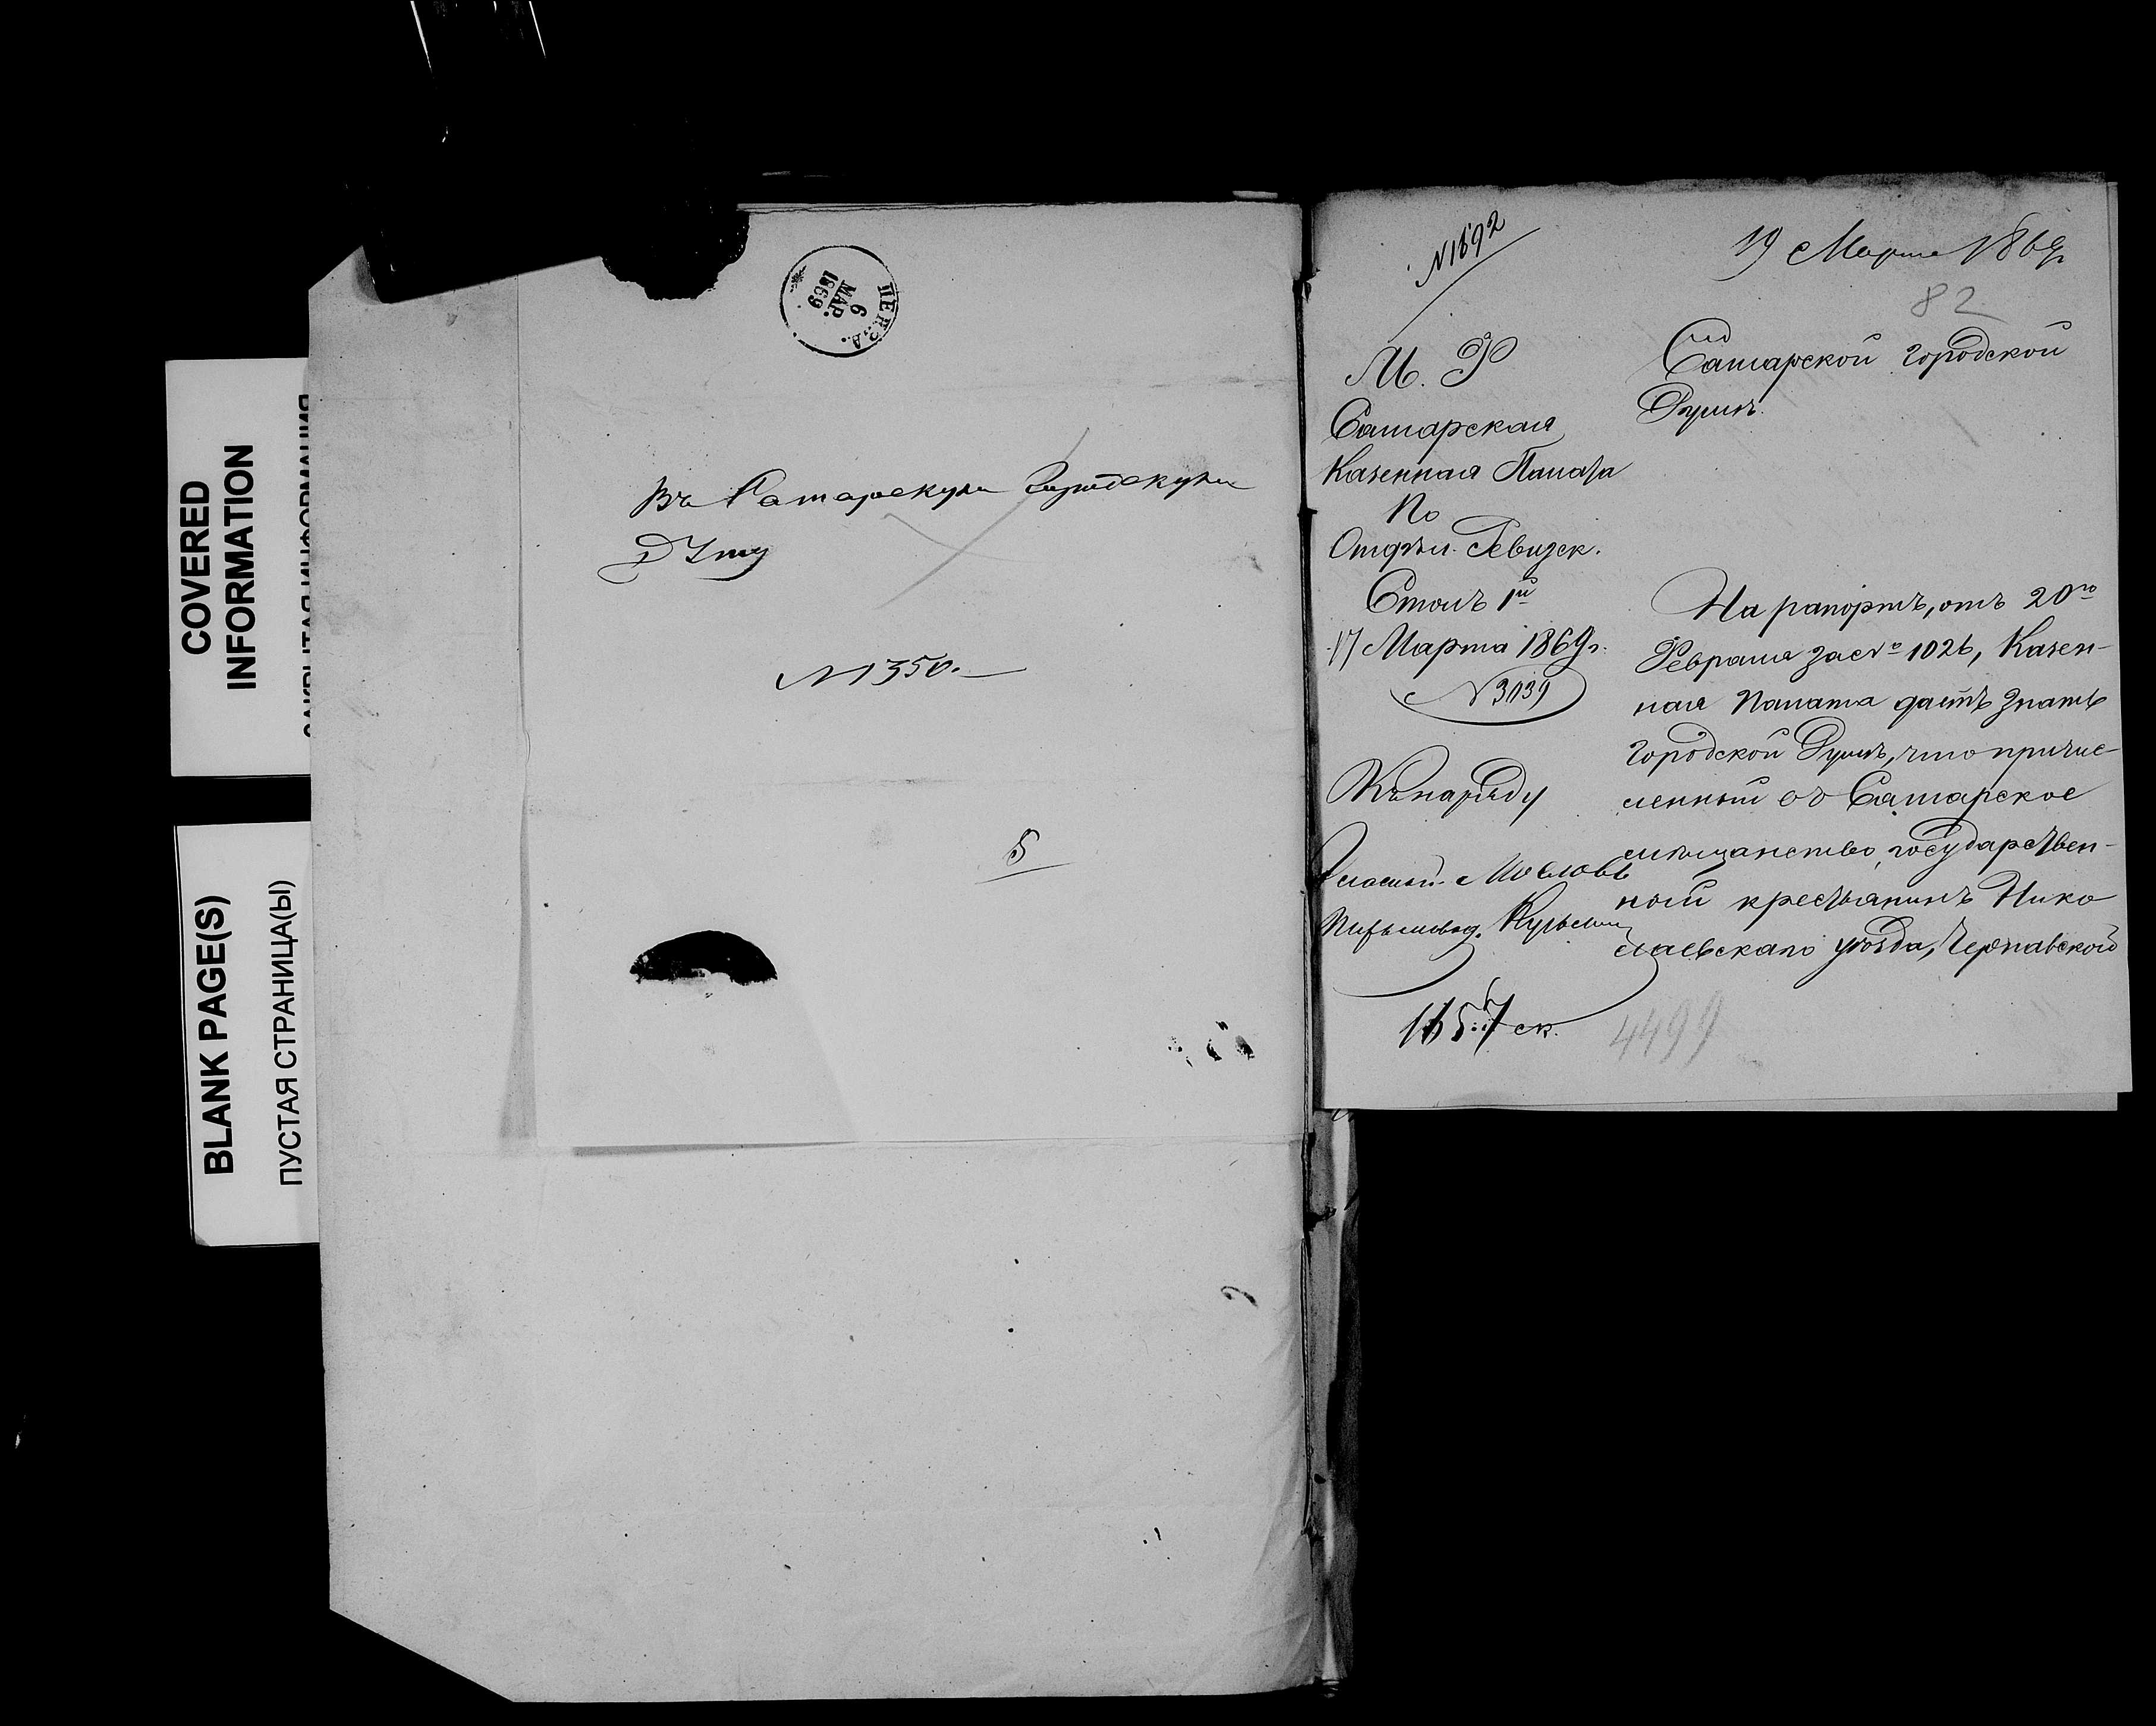 COVERED
INFORMATION
BLANK PAGE(S)
ПУСТАЯ СТРАНИЦА(Ы)
ПЕНЗА.
6
МАР.
1869.
Въ Самарскую Городскую
Думу
№ 1350.
№ 1692
19 Марта 1869 г
82
М. Ф
Самарская
Казенная Палата
По
Отдѣл. Ревизск.
Столъ 1й
17 Марта 1869 г.
№ 3139
Къ наряду
Самарской городской
Думѣ.
На рапортъ, отъ 20го
Февраля за № 1026, Казен-
ная Палата даетъ знать
городской Думѣ, что причис-
ленный въ Самарское
мѣщанство, государствен-
ный крестьянинъ Нико
лаевскаго уѣзда, Чернавской
4499